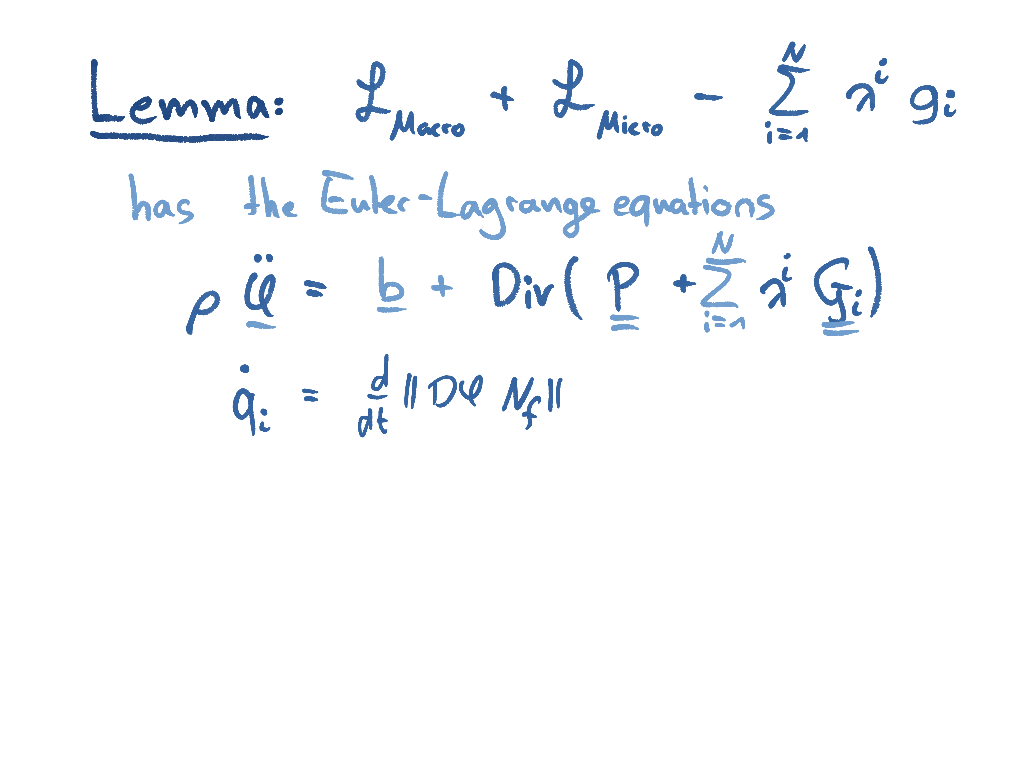 Lemma: ℒ_Macro + ℒ_Micro - ∑_{i=1}^{N} λ^i g_i
has the Euler-Lagrange equations
ρ φ̈ = b + Div( P + ∑_{i=1}^{N} λ^i G_i )
q̇_i = d/dt ‖ Dφ N_f ‖